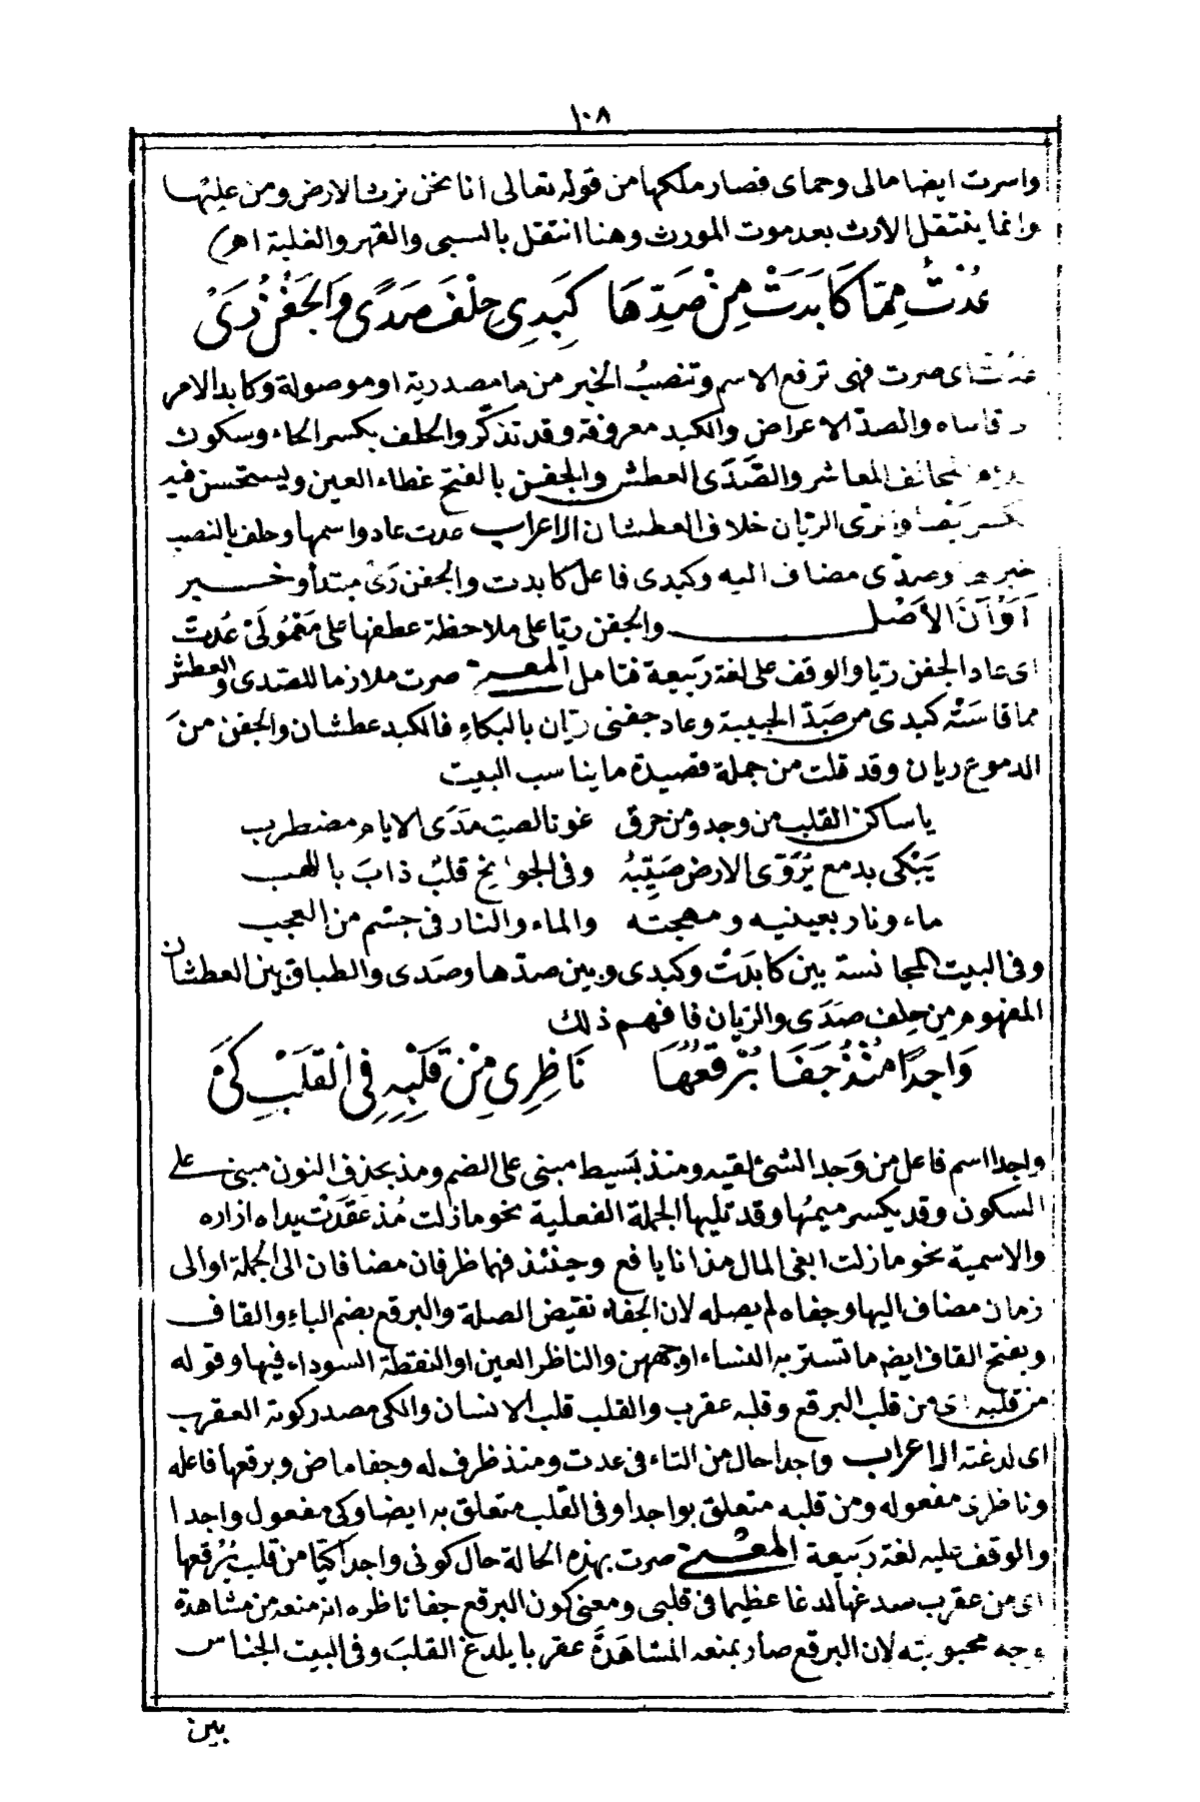 ١٠٨
واسرت ايضا مالى وحماى فصار ملكها من قوله تعالى انا نحن نرث الارض ومن عليها
وانما ينتقل الارث بعد موت المورث وهنا انتقل بالسبى والقهر والغلبة اهـ)
عُدْتُ مِمّا كَابَدَتْ مِنْ صَدِّهَا كَبَدِي حِلْفَ صَدًى وَالجَفْنُ رَىْ
عدت اى صرت فهى ترفع الاسم وتنصبُ الخبر من ما مصدرية او موصولة وكابد الامر
قاساه والصدّ الاعراض والكبد معروفة وقد تذكّر والحلف بكسر الحاء وسكون
المعاشر والصَّدَى العطش والجفن بالفتح غطاء العين ويستحسن فيه
الريّان خلاف العطشان الاعراب عدت عاد واسمها وحلف بالنصب
خبرها وصدّى مضاف اليه وكبدى فاعل كابدت والجفن رَىْ مبتدأ وخبر
اَوْاَنَّ الأَصْل والجفن ريّا على ملاحظة عطفها على مَعْمُولَىْ عُدتُ
اى عاد الجفن ريّا والوقف على لغة رَبيعة فتامل المعنى صرت ملازما للصّدى والعطش
مما قاسَتْه كبدى من صَدّ الحبيبة وعاد جفنى ريّان بالبكاءِ فالكبد عطشان والجفن منَ
الدموع ريان وقد قلت من جملة قصيدة ما يناسب البيت
ياساكن القلب من وجد ومن حرق غوثا لصبّ مَدَى الايام مضطرب
يَبْكى بدمع يُرَوّى الارض صَيّبُه وفى الجوانح قلبٌ ذابَ باللهب
ماء ونار بعينيه ومهجته والماء والنار فى جسْم من العجب
وفى البيت المجانسة بين كابدَتْ وكبدى وبين صدّها وصَدى والطباق بين العطشان
المفهوم من حِلف صَدَى والريّان فافهم ذلك
وَاجِدًا مُنْذُ جَفَا بُرْقُعُهَا نَاظِرِي مِنْ قَلْبِهِ فِي القَلْبِ كَىْ
واجدا اسم فاعل من وَجد الشئ لقيه ومنذ بَسيط مبنى على الضم ومذ بحذف النون مبنى على
السكون وقد يكسر ميمُها وقد تليها الجملة الفعلية نحو مازلت مُذ عَقَدَتْ يداه ازاره
والاسمية نحو مازلت ابغى المال مذ انا يافع وحينئذ فهما ظرفان مضافان الى الجملة او الى
زمان مضاف اليها وجفاه لم يصله لان الجفاء نقيض الصلة والبرقع بضم الباءِ والقاف
وبفتح القاف ايضا ما تستر به النساء اوجههن والناظر العين او النقطة السوداء فيها وقوله
من قلبه اى من قلب البرقع وقلبه عقرب والقلب قلب الانسان والكى مصدر كوته العقرب
اى لدغته الاعراب واجدا حال من التاء فى عدت ومنذ ظرف له وجفا ماض وبرقعها فاعله
وناظرى مفعوله ومن قلبه متعلق بواجدا وفى القلب متعلق به ايضا وكى مفعول واجدا
والوقف عليه لغة رَبيعة المعنى صرت بهذه الحالة حال كونى واجدا كيّا من قلب بُرْقعها
اى من عقرب صدغها لدغا عظيما فى قلبى ومعنى كون البرقع جفا ناظره انه منعه من مشاهدة
وجه محبوبته لان البرقع صار بمنعه المشاهَدةَ عقربا يلدغ القلبَ وفى البيت الجناس
بين